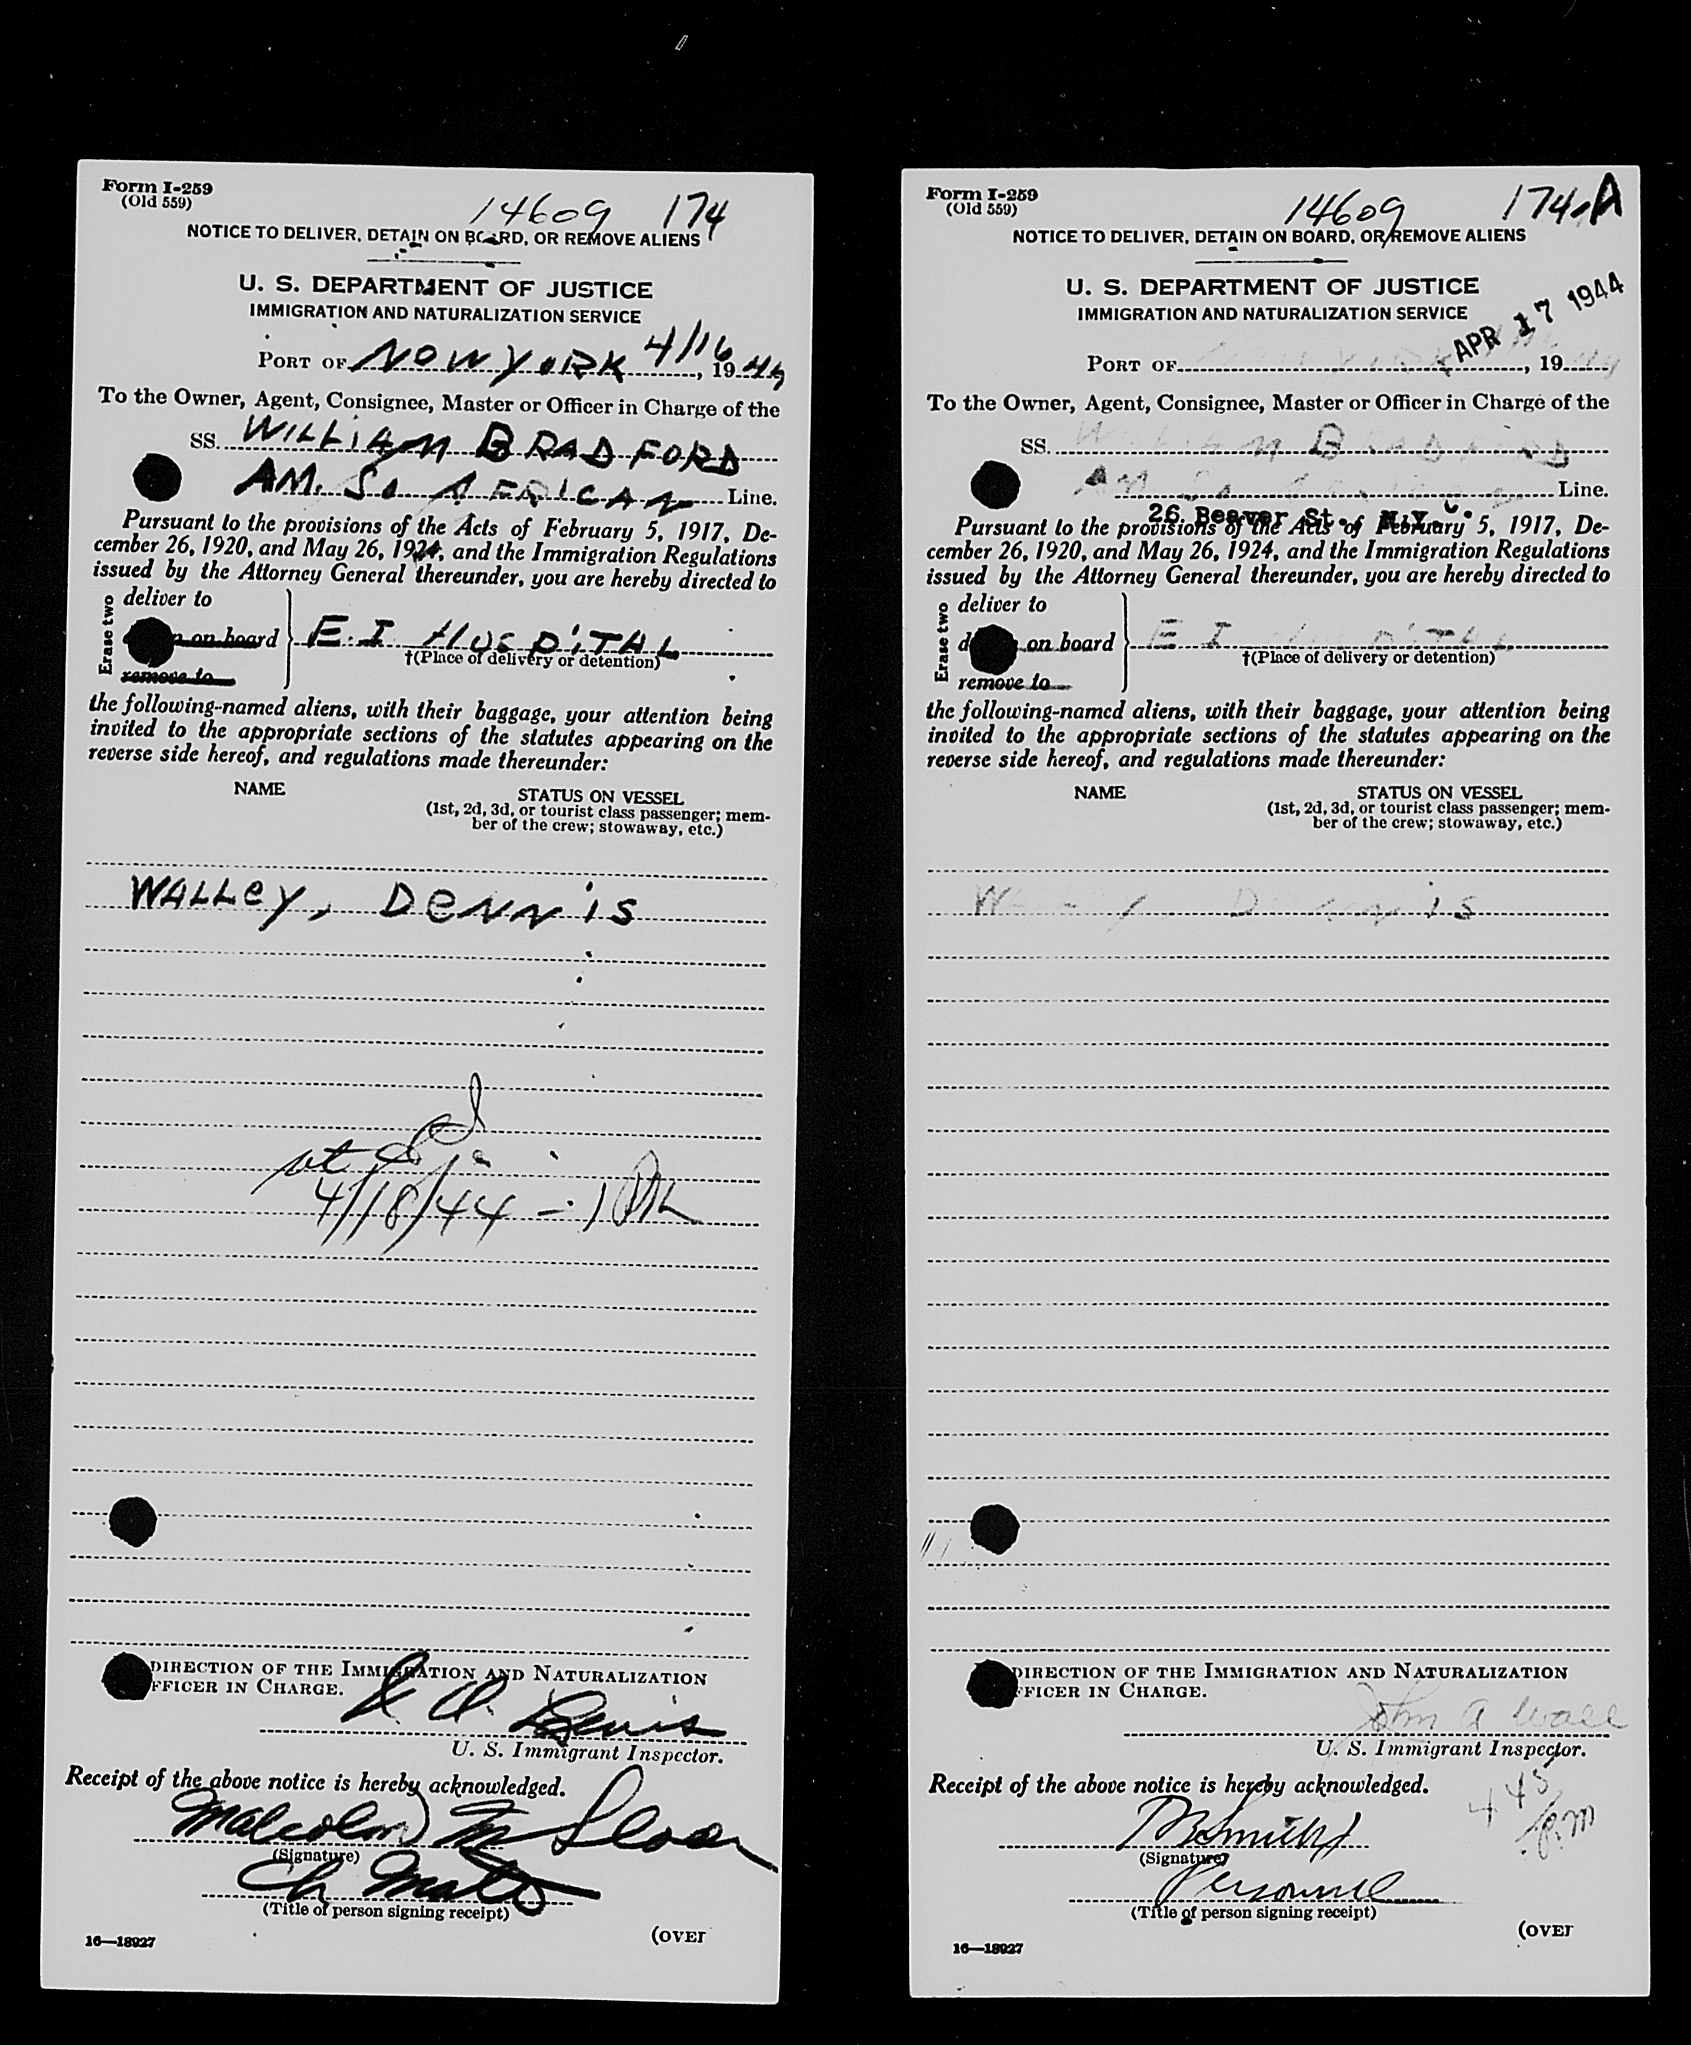 Form I-259
(Old 559)
14609 174
NOTICE TO DELIVER, DETAIN ON BOARD, OR REMOVE ALIENS
U. S. DEPARTMENT OF JUSTICE
IMMIGRATION AND NATURALIZATION SERVICE
PORT OF NOW YORK 4/16, 1944
To the Owner, Agent, Consignee, Master or Officer in Charge of the
SS. WILLIAM BRADFORD
AM. SO AFRICAN Line.
Pursuant to the provisions of the Acts of February 5, 1917, De-
cember 26, 1920, and May 26, 1924, and the Immigration Regulations
issued by the Attorney General thereunder, you are hereby directed to
Erase two
deliver to
on board E.I HOSPITAL
†(Place of delivery or detention)
remove to
the following-named aliens, with their baggage, your attention being
invited to the appropriate sections of the statutes appearing on the
reverse side hereof, and regulations made thereunder:
NAME STATUS ON VESSEL
(1st, 2d, 3d, or tourist class passenger; mem-
ber of the crew; stowaway, etc.)
WALLEY, DENNIS
4/18/44 -
DIRECTION OF THE IMMIGRATION AND NATURALIZATION
FFICER IN CHARGE.
Lewis
U. S. Immigrant Inspector.
Receipt of the above notice is hereby acknowledged.
Malcolm M Sloan
(Signature)
Ch Mate
(Title of person signing receipt)
16—18927 (OVER
Form I-259
(Old 559)
14609 174A
NOTICE TO DELIVER, DETAIN ON BOARD, OR REMOVE ALIENS
U. S. DEPARTMENT OF JUSTICE
IMMIGRATION AND NATURALIZATION SERVICE
APR 17 1944
PORT OF NOW YORK, 19 44
To the Owner, Agent, Consignee, Master or Officer in Charge of the
SS. WILLIAM BRADFORD
AM SO AFRICAN Line.
26 Beaver St., N.Y.C.
Pursuant to the provisions of the Acts of February 5, 1917, De-
cember 26, 1920, and May 26, 1924, and the Immigration Regulations
issued by the Attorney General thereunder, you are hereby directed to
Erase two
deliver to
on board E I HOSPITAL
†(Place of delivery or detention)
remove to
the following-named aliens, with their baggage, your attention being
invited to the appropriate sections of the statutes appearing on the
reverse side hereof, and regulations made thereunder:
NAME STATUS ON VESSEL
(1st, 2d, 3d, or tourist class passenger; mem-
ber of the crew; stowaway, etc.)
WALLEY, DENNIS
DIRECTION OF THE IMMIGRATION AND NATURALIZATION
FFICER IN CHARGE.
John A Wall
U. S. Immigrant Inspector.
Receipt of the above notice is hereby acknowledged.
445 pm
Smith
(Signature)
Personnel
(Title of person signing receipt)
16—18927 (OVER